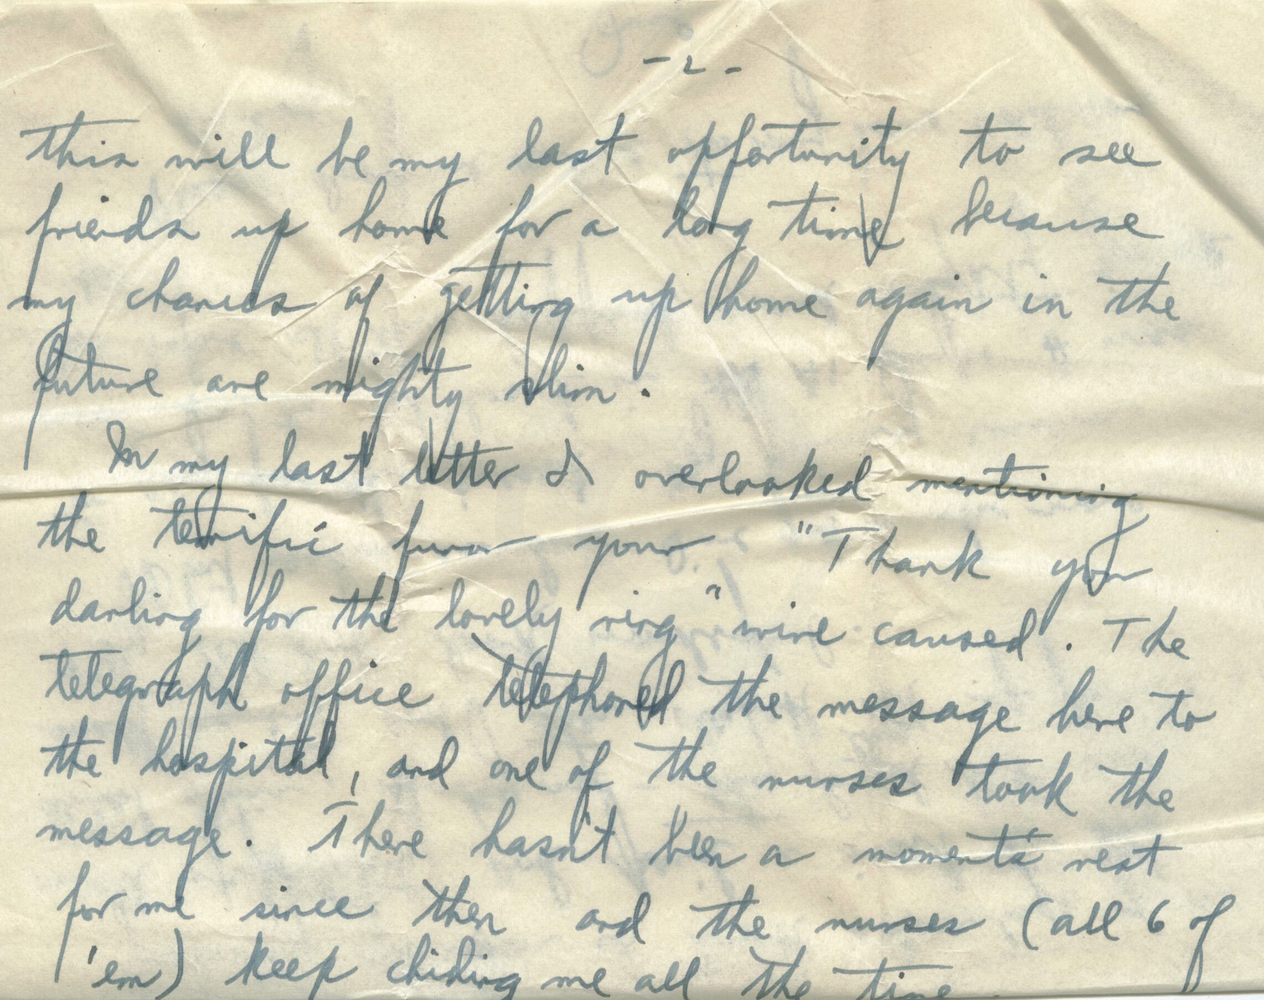 - 2 -
this will be my last opportunity to see
friends up home for a long time because
my chances of getting up home again in the
future are mighty slim.
In my last letter I overlooked mentioning
the terrific furor your "Thank you
darling for the lovely ring" wire caused. The
telegraph office telephoned the message here to
the hospital, and one of the nurses took the
message. There hasn't been a moment's rest
for me since then and the nurses (all 6 of
'em) keep chiding me all the time